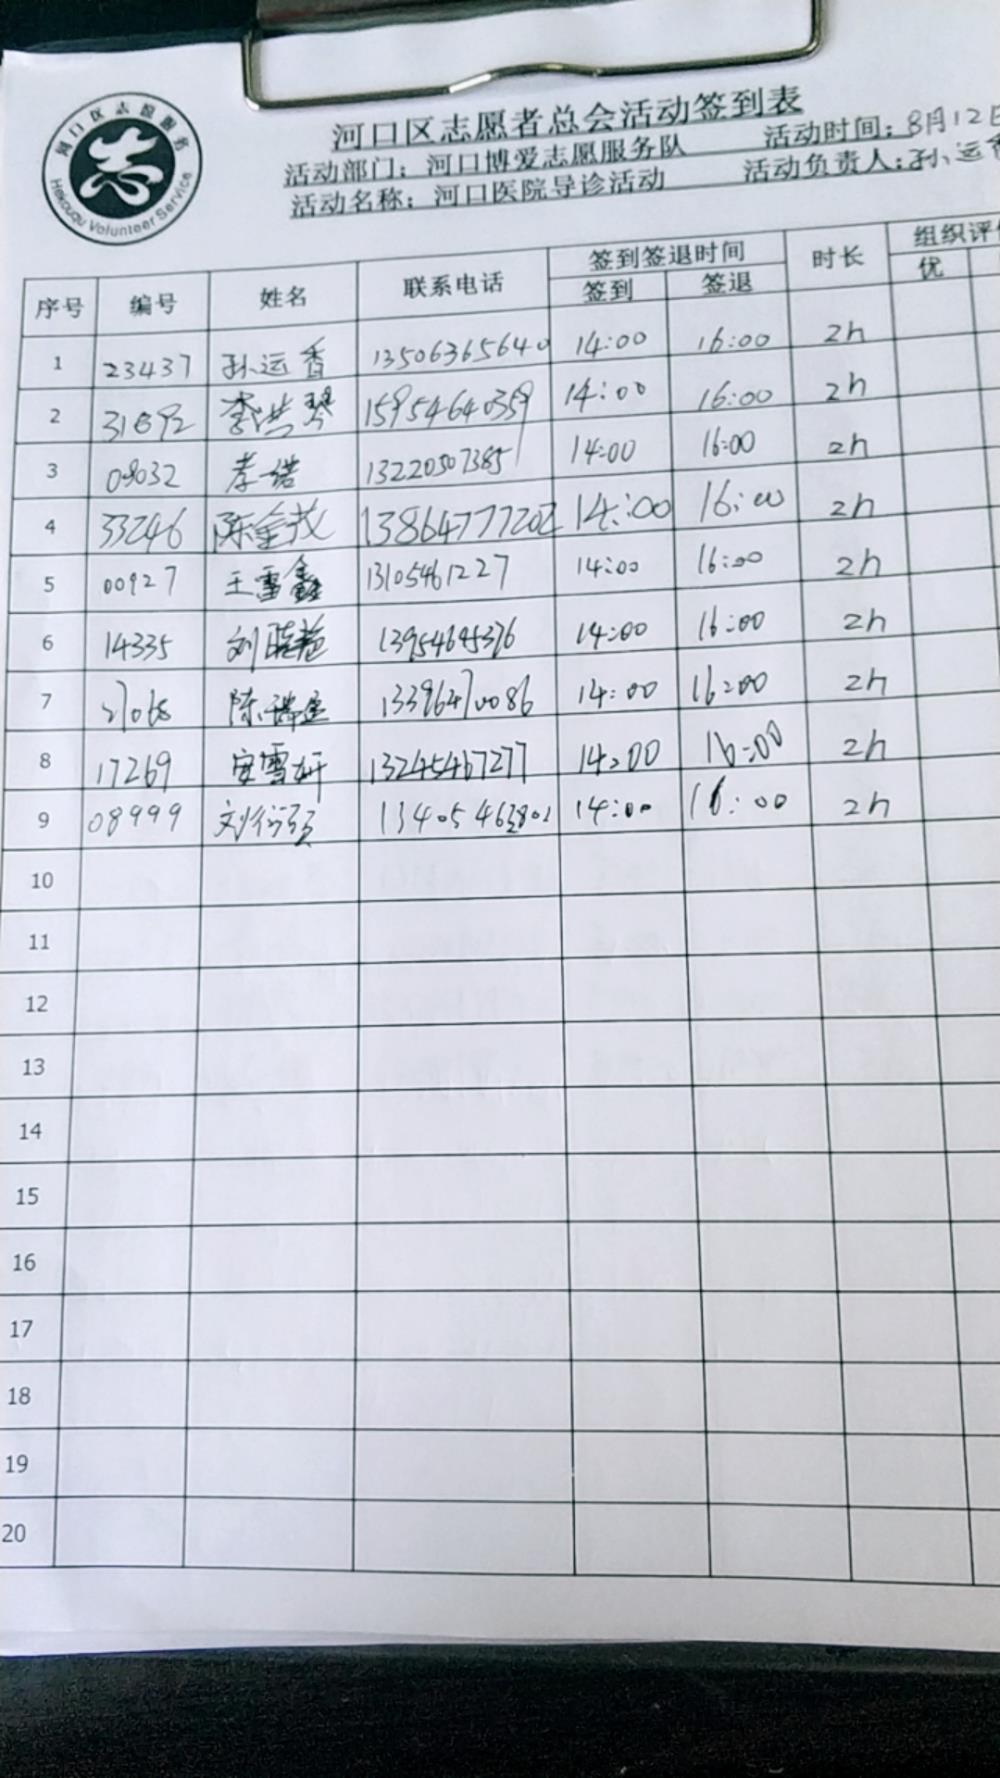 河口区志愿服务
志
Hekouqu Volunteer Service
河口区志愿者总会活动签到表
活动部门：河口博爱志愿服务队 活动时间：8月12日
活动名称：河口医院导诊活动 活动负责人：孙运香
序号 编号 姓名 联系电话 签到签退时间 时长 组织评
签到 签退 优
1 23437 孙运香 13506365640 14:00 16:00 2h
2 31892 李洪琴 15954640359 14:00 16:00 2h
3 08032 李 13220507385 14:00 16:00 2h
4 33246 陈金茂 13864777202 14:00 16:00 2h
5 00927 王雪鑫 13105461227 14:00 16:00 2h
6 14335 刘晓艳 13954695376 14:00 16:00 2h
7 27068 陈瑞 13396470086 14:00 16:00 2h
8 17269 安雪妍 13245467277 14:00 16:00 2h
9 08999 刘 13405463801 14:00 16:00 2h
10
11
12
13
14
15
16
17
18
19
20